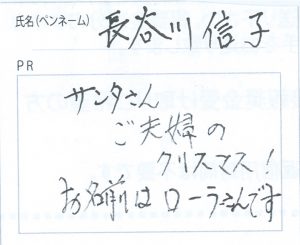 氏名(ペンネーム) 長谷川信子
PR
サンタさん
ご夫婦の
クリスマス!
お名前はローラさんです